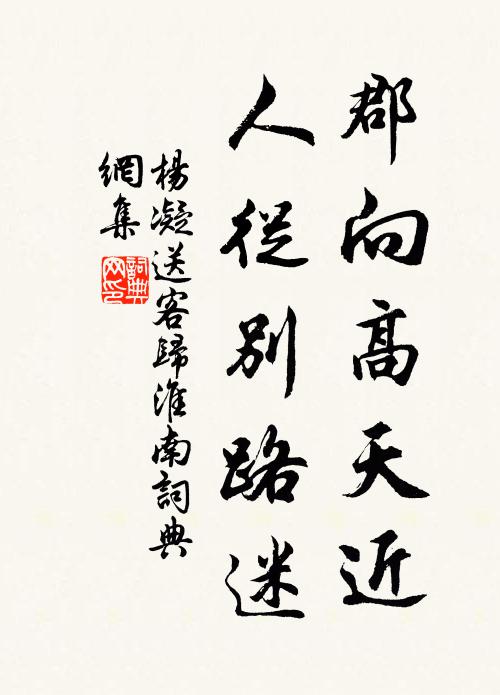 郡向高天近
人從別路迷
楊凝送客歸淮南詞典
網集
詞典
网印